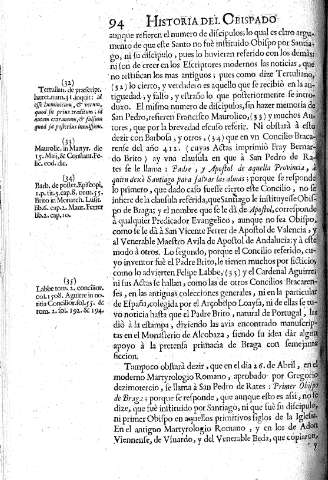 94 HISTORIA DEL OBISPADO
aunque refieren el numero de discipulos, lo qual es claro argu-
mento de que este Santo no fuè instituido Obispo por Santia-
go, ni su discipulo, pues lo huvieren referido con los demàs:
ni son de creer en los Escriptores modernos las noticias, que
no testifican los mas antiguos; pues como dize Tertuliano,
(32) lo cierto, y verdadero es aquello que se recibiò en la an-
tiguedad, y falso, y estraño lo que posteriormente se intro-
duce. El mismo numero de discipulos, sin hazer memoria de
San Pedro, refieren Francisco Maurolico, (33) y muchos Au-
tores, que por la brevedad escuso referir. No obstará à esto
dezir con Barbosa, y otros, (34) que en vn Concilio Braca-
rense del año 412. (cuyas Actas imprimiò Fray Bernar-
do Brito) ay vna clausula en que à San Pedro de Ra-
tes se le llama: Padre, y Apostol de aquella Provincia, à
quien dexò Santiago para salvar las almas; porque se responde
lo primero, que dado caso fuesse cierto este Concilio, no se
infiere de la clausula referida, que Santiago le instituyesse Obis-
po de Braga; y el nombre que se le dà de Apostol, corresponde
à qualquier Predicador Evangelico, aunque no sea Obispo,
como se le dà à San Vicente Ferrer de Apostol de Valencia; y al
Venerable Maestro Avila de Apostol de Andaluzia; y à este
modo à otros. Lo segundo, porque el Concilio referido, cu-
yo inventor fuè el Padre Brito, le tienen muchos por ficticio,
como lo advierten Felipe Labbe, (35) y el Cardenal Aguirre;
ni sus Actas se hallan, como las de otros Concilios Bracaren-
ses, en las antiguas colecciones generales, ni en la particular
de España, colegida por el Arçobispo Loaysa, ni de ellas se tu-
vo noticia hasta que el Padre Brito, natural de Portugal, las
diò à la estampa, diziendo las avia encontrado manuscrip-
tas en el Monasterio de Alcobaza, siendo su idea dàr algun
apoyo à la pretensa primacia de Braga con semejante
ficcion.
Tampoco obstará dezir, que en el dia 26. de Abril, en el
moderno Martyrologio Romano, aprobado por Gregorio
dezimotercio, se llama à San Pedro de Rates: Primer Obispo
de Braga: porque se responde, que aunque esto es assi, no se
dize, que fuè instituido por Santiago, ni que fuè su discipulo,
ni primer Obispo en aquellos primitivos siglos de la Iglesia.
En el antiguo Martyrologio Romano, y en los de Adon
Viennense, de Vsuardo, y del Venerable Beda, que copiaron,
y
(32)
(33)
Maurolic. in Martyr. die
15. Maij, &
(34)
Barb. de potest. Episcopi,
(35)
Labbe tom. 2. concilior.